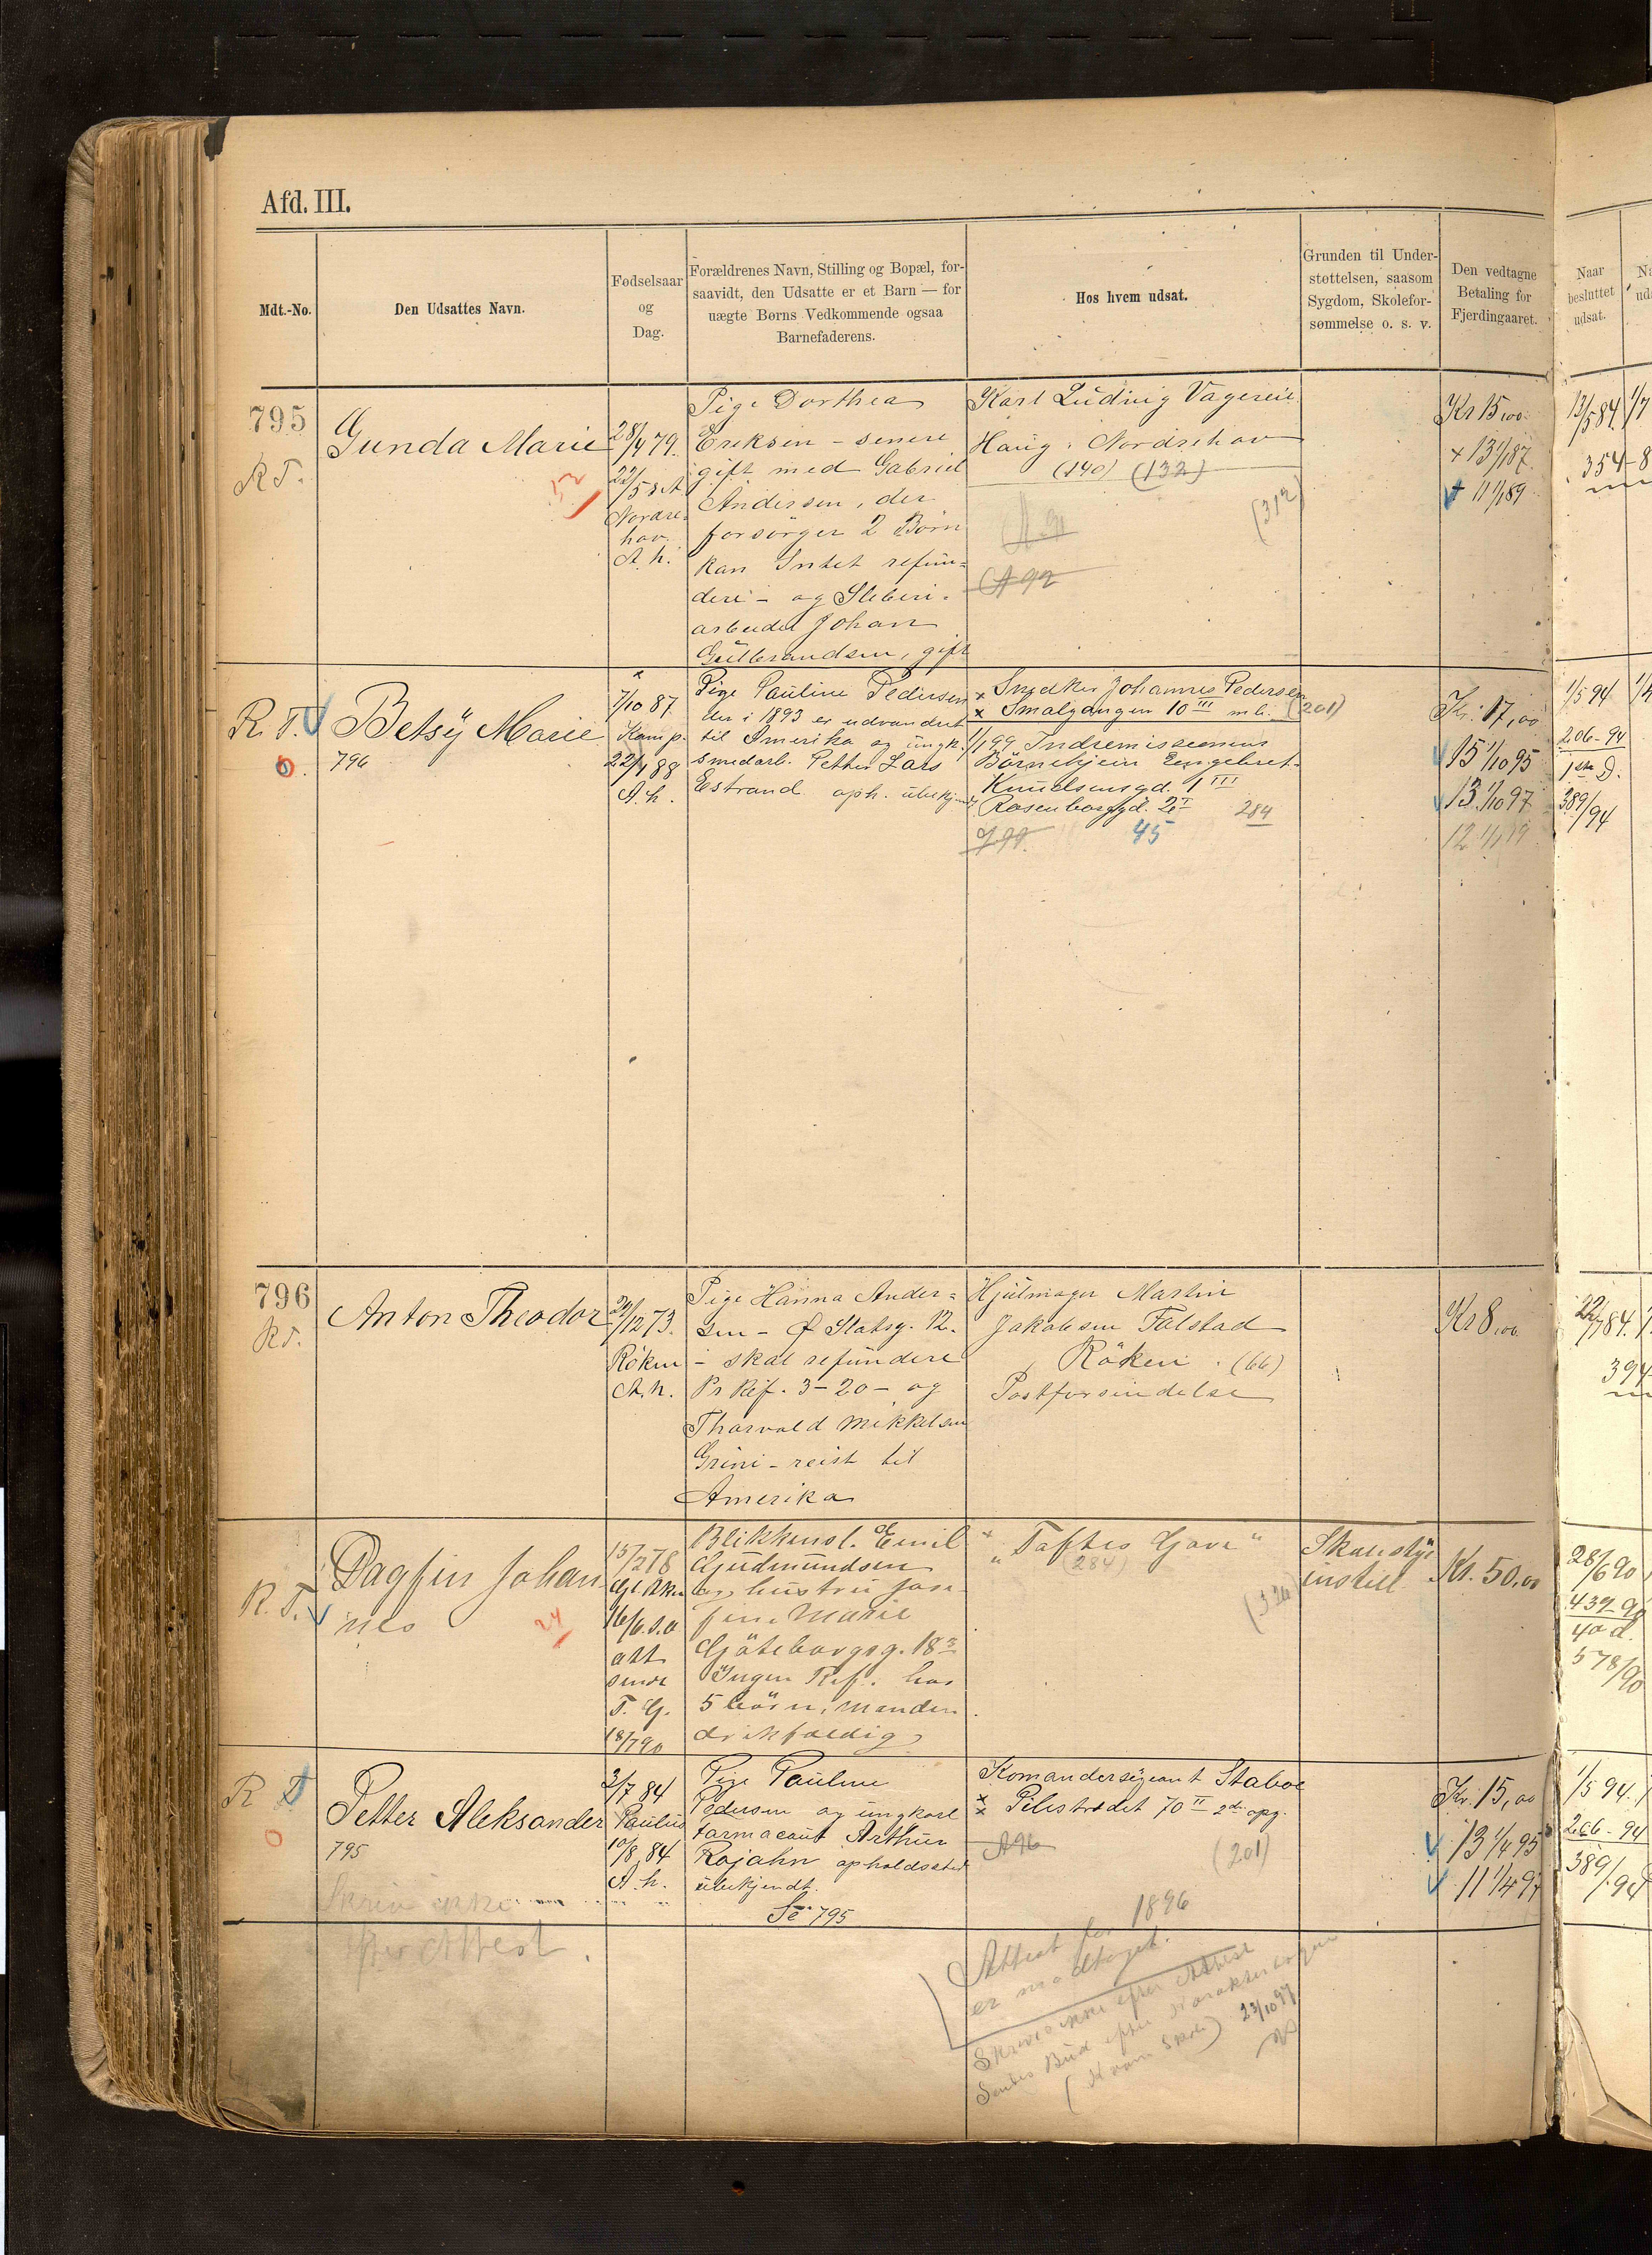 Afd. III.
Mdt.-No.
Den Udsattes Navn.
Fødselsaar
og
Dag.
Forældrenes Navn, Stilling og Bopæl, for-
saavidt, den Udsatte er et Barn — for
uægte Børns Vedkommende ogsaa
Barnefaderens.
Hos hvem udsat.
Grunden til Under-
støttelsen, saasom
Sygdom, Skolefor-
sømmelse o. s. v.
Den vedtagne
Betaling for
Fjerdingaaret.
Naar
besluttet
udsat.
795
R T.
Gunda Marie
52
28/4 79.
22/5 s A
Nordre-
hov
A. h.
Pige Dorthea
Eriksen - senere
gift med Gabriel
Andersen, der
forsörger 2 Börn
kan Intet refun-
dere - og Steberi-
arbeider Johan
Gulbrandsen, gift
Karl Ludvig Vagereie
Haug i Nordrehov
(140) (132)
(312)
A 91
A 92
Kr 15,00.
+ 13 1/1 87.
+ 11 1/1 89
12/5 84
354-8
R. T.
0.
Betsy Marie
796
7/10 87.
Kamp.
22/4 88
A. h.
Pige Pauline Pedersen
der i 1893 er udvandret
til Amerika og ungk.
smedarb. Petter Lars
Estrand oph. ubekjendt
x Snedker Johannes Pedersen
x Smalgangen 10 III m b. (201)
1/1 99 Indremissionens
Börnehjem Engebret-
Knudsensgd. 1 III
Rosenborggd. 2 I 284
J. 99. 45
Kr. 17,00
15 1/10 95
13 1/10 97
12 1/1 99
1/5 94
206-94
1ste D.
389/94
796
R T.
Anton Theodor
/12 73.
Röken
A. h.
Pige Hanna Ander-
sen - Ø Slotsg. 12.
- skal refundere
Pr Kif. 3-20 - og
Thorvald Mikkelsen
Grini - reist til
Amerika
Hjulmager Martin
Jakobsen Falstad
Röken. (66)
Postforsendelse
Kr 8,00.
22/7 84.
394
R. T.
Dagfin Johan-
nes
24
15/2 78
Gl. Aker
16/6 s. a
att
sendt
T. G.
18/7 90
Blikkensl. Emil
Gudmundsen
og hustru Jose-
fine Marie
Göteborgsg. 18 3
Ingen Ref. har
5 börn, manden
drikfældig
" Toftes Gave "
(284)
(326)
Skolestyr
instill.
Kr. 50,00
28/6 90
439-90
40 d.
578/90
R T
0
Petter Aleksander
795
3/7 84
Paulus
10/8 84
A. h.
Pige Pauline
Pedersen og ungkarl
farmaceut Arthur
Rojahn opholdssted
ubekjendt.
Se 795
Komandersergeant Staboe
x Pilestrædet 70 II 2den opg.
A 96
(201)
Kr. 15,00
13 1/4 95
11 1/4 97
1/5 94.
206-94
389/94
Skriv ikke
efter Attest.
Attest for 1896
er modtaget.
Skrives ikke efter Attest
Sendes Bud efter Karakterbogen
23/10 97